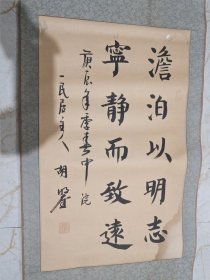 澹泊以明志
寧静而致遠
庚辰年季春中浣
一民居主人 胡